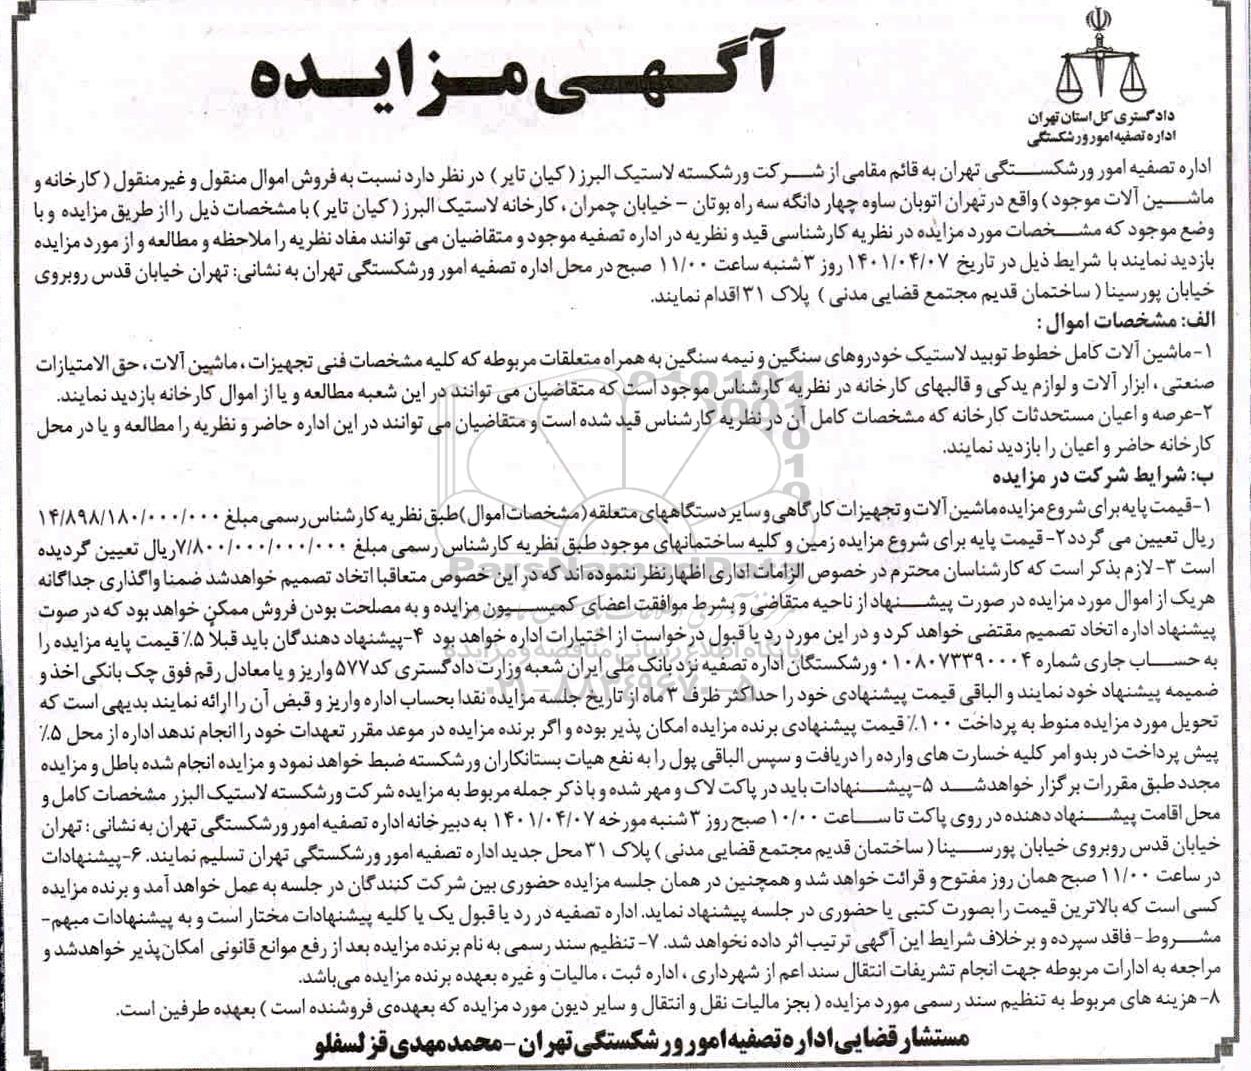 دادگستری کل استان تهران
اداره تصفیه امور ورشکستگی
آگهی مزایده
اداره تصفیه امور ورشکستگی تهران به قائم مقامی از شرکت ورشکسته لاستیک البرز (کیان تایر) در نظر دارد نسبت به فروش اموال منقول و غیرمنقول (کارخانه و
ماشین آلات موجود) واقع در تهران اتوبان ساوه چهار دانگه سه راه بوتان – خیابان چمران، کارخانه لاستیک البرز (کیان تایر) با مشخصات ذیل را از طریق مزایده و با
وضع موجود که مشخصات مورد مزایده در نظریه کارشناسی قید و نظریه در اداره تصفیه موجود و متقاضیان می توانند مفاد نظریه را ملاحظه و مطالعه و از مورد مزایده
بازدید نمایند با شرایط ذیل در تاریخ ۱۴۰۱/۰۴/۰۷ روز ۳شنبه ساعت ۱۱/۰۰ صبح در محل اداره تصفیه امور ورشکستگی تهران به نشانی: تهران خیابان قدس روبروی
خیابان پورسینا (ساختمان قدیم مجتمع قضایی مدنی) پلاک ۳۱ اقدام نمایند.
الف: مشخصات اموال:
۱-ماشین آلات کامل خطوط توبید لاستیک خودروهای سنگین و نیمه سنگین به همراه متعلقات مربوطه که کلیه مشخصات فنی تجهیزات، ماشین آلات، حق الامتیازات
صنعتی، ابزار آلات و لوازم یدکی و قالبهای کارخانه در نظریه کارشناس موجود است که متقاضیان می توانند در این شعبه مطالعه و یا از اموال کارخانه بازدید نمایند.
۲-عرصه و اعیان مستحدثات کارخانه که مشخصات کامل آن در نظریه کارشناس قید شده است و متقاضیان می توانند در این اداره حاضر و نظریه را مطالعه و یا در محل
کارخانه حاضر و اعیان را بازدید نمایند.
ب: شرایط شرکت در مزایده
۱-قیمت پایه برای شروع مزایده ماشین آلات و تجهیزات کارگاهی و سایر دستگاههای متعلقه (مشخصات اموال) طبق نظریه کارشناس رسمی مبلغ ۱۴/۸۹۸/۱۸۰/۰۰۰/۰۰۰
ریال تعیین می گردد ۲-قیمت پایه برای شروع مزایده زمین و کلیه ساختمانهای موجود طبق نظریه کارشناس رسمی مبلغ ۷/۸۰۰/۰۰۰/۰۰۰/۰۰۰ریال تعیین گردیده
است ۳-لازم بذکر است که کارشناسان محترم در خصوص الزامات اداری اظهارنظر ننموده اند که در این خصوص متعاقبا اتخاد تصمیم خواهدشد ضمنا واگذاری جداگانه
هریک از اموال مورد مزایده در صورت پیشنهاد از ناحیه متقاضی و بشرط موافقت اعضای کمیسیون مزایده و به مصلحت بودن فروش ممکن خواهد بود که در صوت
پیشنهاد اداره اتخاد تصمیم مقتضی خواهد کرد و در این مورد رد یا قبول درخواست از اختیارات اداره خواهد بود ۴-پیشنهاد دهندگان باید قبلاً ۵٪ قیمت پایه مزایده را
به حساب جاری شماره ۰۱۰۸۰۷۳۳۹۰۰۰۴ ورشکستگان اداره تصفیه نزد بانک ملی ایران شعبه وزارت دادگستری کد ۵۷۷ واریز و یا معادل رقم فوق چک بانکی اخذ و
ضمیمه پیشنهاد خود نمایند و الباقی قیمت پیشنهادی خود را حداکثر ظرف ۳ ماه از تاریخ جلسه مزایده نقدا بحساب اداره واریز و قبض آن را ارائه نمایند بدیهی است که
تحویل مورد مزایده منوط به پرداخت ۱۰۰٪ قیمت پیشنهادی برنده مزایده امکان پذیر بوده و اگر برنده مزایده در موعد مقرر تعهدات خود را انجام ندهد اداره از محل ۵٪
پیش پرداخت در بدو امر کلیه خسارت های وارده را دریافت و سپس الباقی پول را به نفع هیات بستانکاران ورشکسته ضبط خواهد نمود و مزایده انجام شده باطل و مزایده
مجدد طبق مقررات برگزار خواهدشد ۵-پیشنهادات باید در پاکت لاک و مهر شده و با ذکر جمله مربوط به مزایده شرکت ورشکسته لاستیک البزر مشخصات کامل و
محل اقامت پیشنهاد دهنده در روی پاکت تا ساعت ۱۰/۰۰ صبح روز ۳شنبه مورخه ۱۴۰۱/۰۴/۰۷ به دبیرخانه اداره تصفیه امور ورشکستگی تهران به نشانی: تهران
خیابان قدس روبروی خیابان پورسینا (ساختمان قدیم مجتمع قضایی مدنی) پلاک ۳۱ محل جدید اداره تصفیه امور ورشکستگی تهران تسلیم نمایند. ۶-پیشنهادات
در ساعت ۱۱/۰۰ صبح همان روز مفتوح و قرائت خواهد شد و همچنین در همان جلسه مزایده حضوری بین شرکت کنندگان در جلسه به عمل خواهد آمد و برنده مزایده
کسی است که بالاترین قیمت را بصورت کتبی یا حضوری در جلسه پیشنهاد نماید. اداره تصفیه در رد یا قبول یک یا کلیه پیشنهادات مختار است و به پیشنهادات مبهم-
مشروط-فاقد سپرده و برخلاف شرایط این آگهی ترتیب اثر داده نخواهد شد. ۷- تنظیم سند رسمی به نام برنده مزایده بعد از رفع موانع قانونی امکان‌پذیر خواهدشد و
مراجعه به ادارات مربوطه جهت انجام تشریفات انتقال سند اعم از شهرداری، اداره ثبت، مالیات و غیره بعهده برنده مزایده می‌باشد.
۸-هزینه های مربوط به تنظیم سند رسمی مورد مزایده (بجز مالیات نقل و انتقال و سایر دیون مورد مزایده که بعهده‌ی فروشنده است) بعهده طرفین است.
مستشار قضایی اداره تصفیه امور ورشکستگی تهران-محمد مهدی قزلسفلو
ParsNamadData
پایگاه اطلاع رسانی مناقصه و مزایده
۰۲۱-۸۸۳۴۹۶۷۰-۵